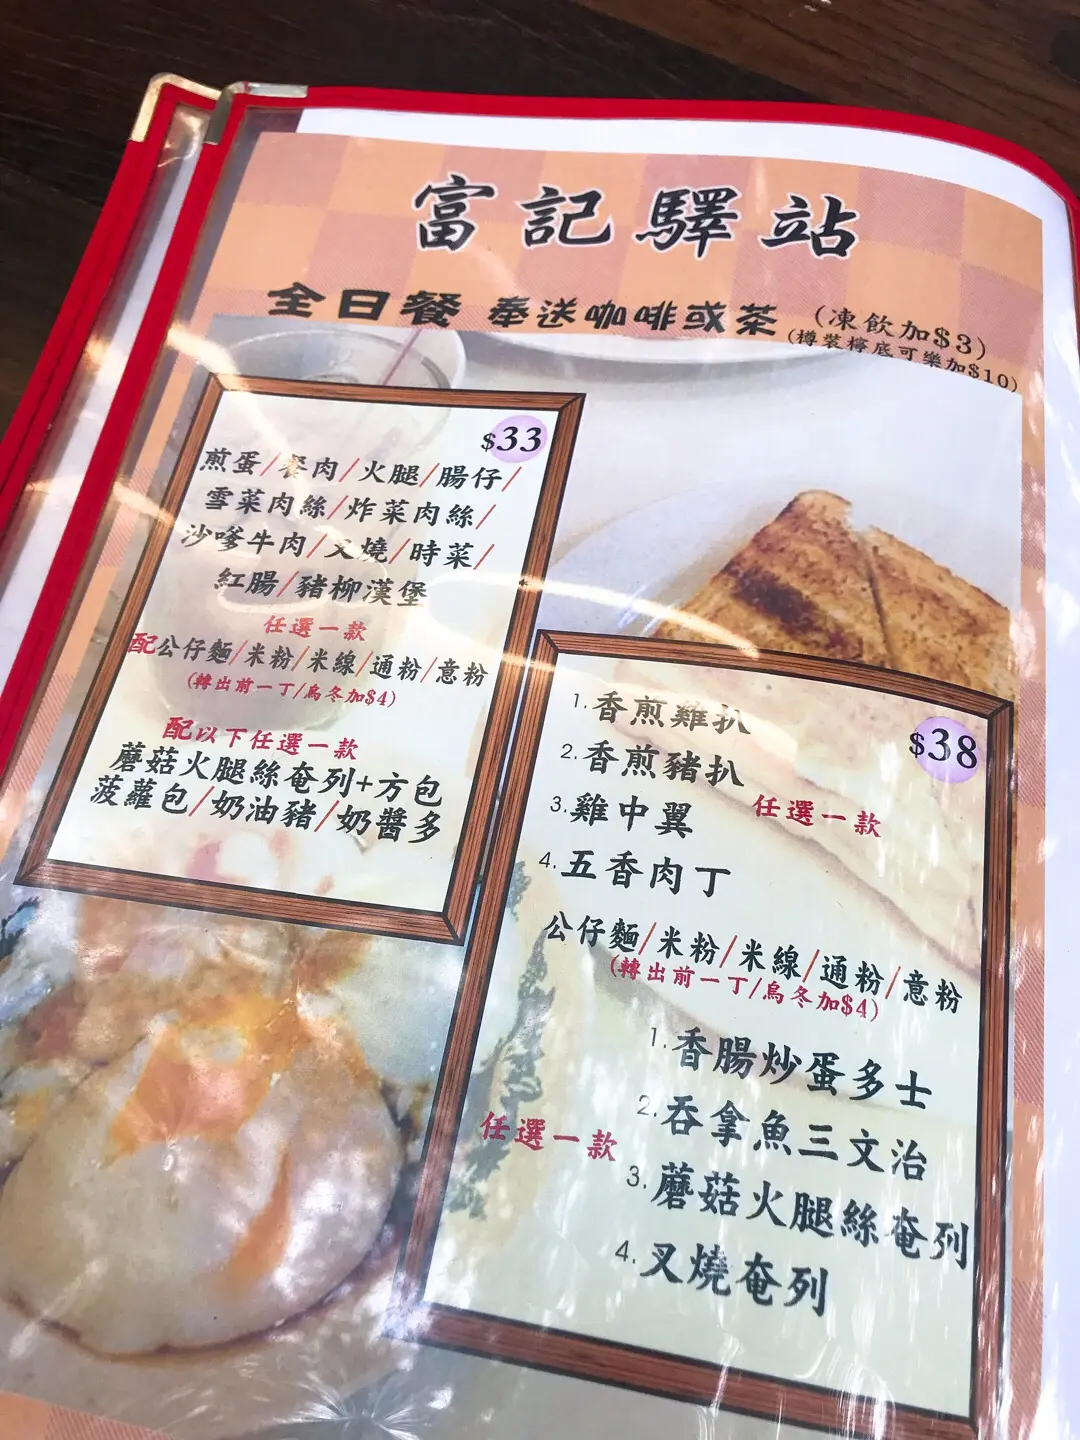 富記驛站
全日餐 奉送咖啡或茶 (凍飲加$3)
(樽裝檸底可樂加$10)
$33
煎蛋/餐肉/火腿/腸仔/
雪菜肉絲/炸菜肉絲/
沙嗲牛肉/叉燒/時菜/
紅腸/豬柳漢堡
任選一款
配公仔麵/米粉/米線/通粉/意粉
(轉出前一丁/烏冬加$4)
配以下任選一款
蘑菇火腿絲奄列+方包
菠蘿包/奶油豬/奶醬多
$38
1.香煎雞扒
2.香煎豬扒
3.雞中翼
任選一款
4.五香肉丁
公仔麵/米粉/米線/通粉/意粉
(轉出前一丁/烏冬加$4)
1.香腸炒蛋多士
2.吞拿魚三文治
任選一款
3.蘑菇火腿絲奄列
4.叉燒奄列